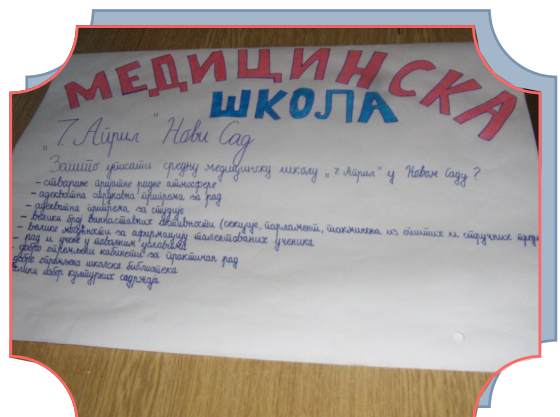 МЕДИЦИНСКА
ШКОЛА
„7. Април" Нови Сад
Зашто уписати средњу медицинску школу „7. Април" у Новом Саду?
- стварање пријатне радне атмосфере
- адекватна стручна припрема за рад
- адекватна припрема за студије
- велики број ваннаставних активности (секције, парламент, такмичења из општих и стручних пред
- велике могућности за афирмацију талентованих ученика
- рад и учење у повољним условима
- добро опремљени кабинети за практичан рад
добро опремљена школска библиотека
велики избор културних садржаја